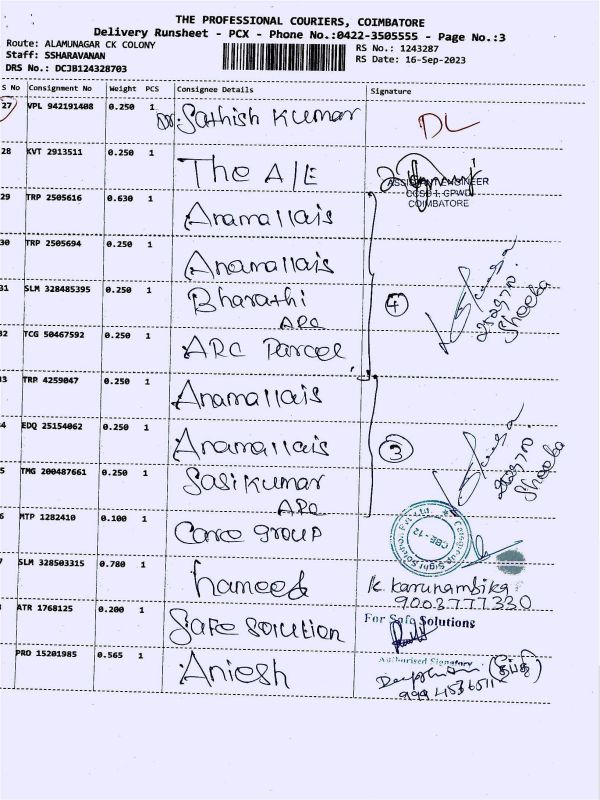 THE PROFESSIONAL COURIERS, COIMBATORE
Delivery Runsheet - PCX - Phone No.:0422-3505555 - Page No.:3
Route: ALAMUNAGAR CK COLONY
RS No.: 1243287
Staff: SSHARAVANAN
RS Date: 16-Sep-2023
DRS No.: DCJB124328703
S No Consignment No Weight PCS Consignee Details Signature
27 VPL 942191408 0.250 1 Dr. Sathish Kumar DL
28 KVT 2913511 0.250 1 The A/E
ASSISTANT ENGINEER
CCSD I, CPWD
COIMBATORE
29 TRP 2505616 0.630 1 Anamallais
30 TRP 2505694 0.250 1 Anamallais
31 SLM 328485395 0.250 1 Bharathi
ARC
4
Sheeba
32 TCG 50467592 0.250 1 ARC Parcel
33 TRP 4259047 0.250 1 Anamallais
4 EDQ 25154062 0.250 1 Anamallais
3
Sheeba
5 TMG 200487661 0.250 1 Sasikumar
ARC
6 MTP 1282410 0.100 1 Care group
CBE-12
7 SLM 328503315 0.780 1 hameed
K. Karunambika
9003777330
ATR 1768125 0.200 1 Safe Solution
For Safe Solutions
Authorised Signatory
PRO 15201985 0.565 1 Aniesh
9994536511